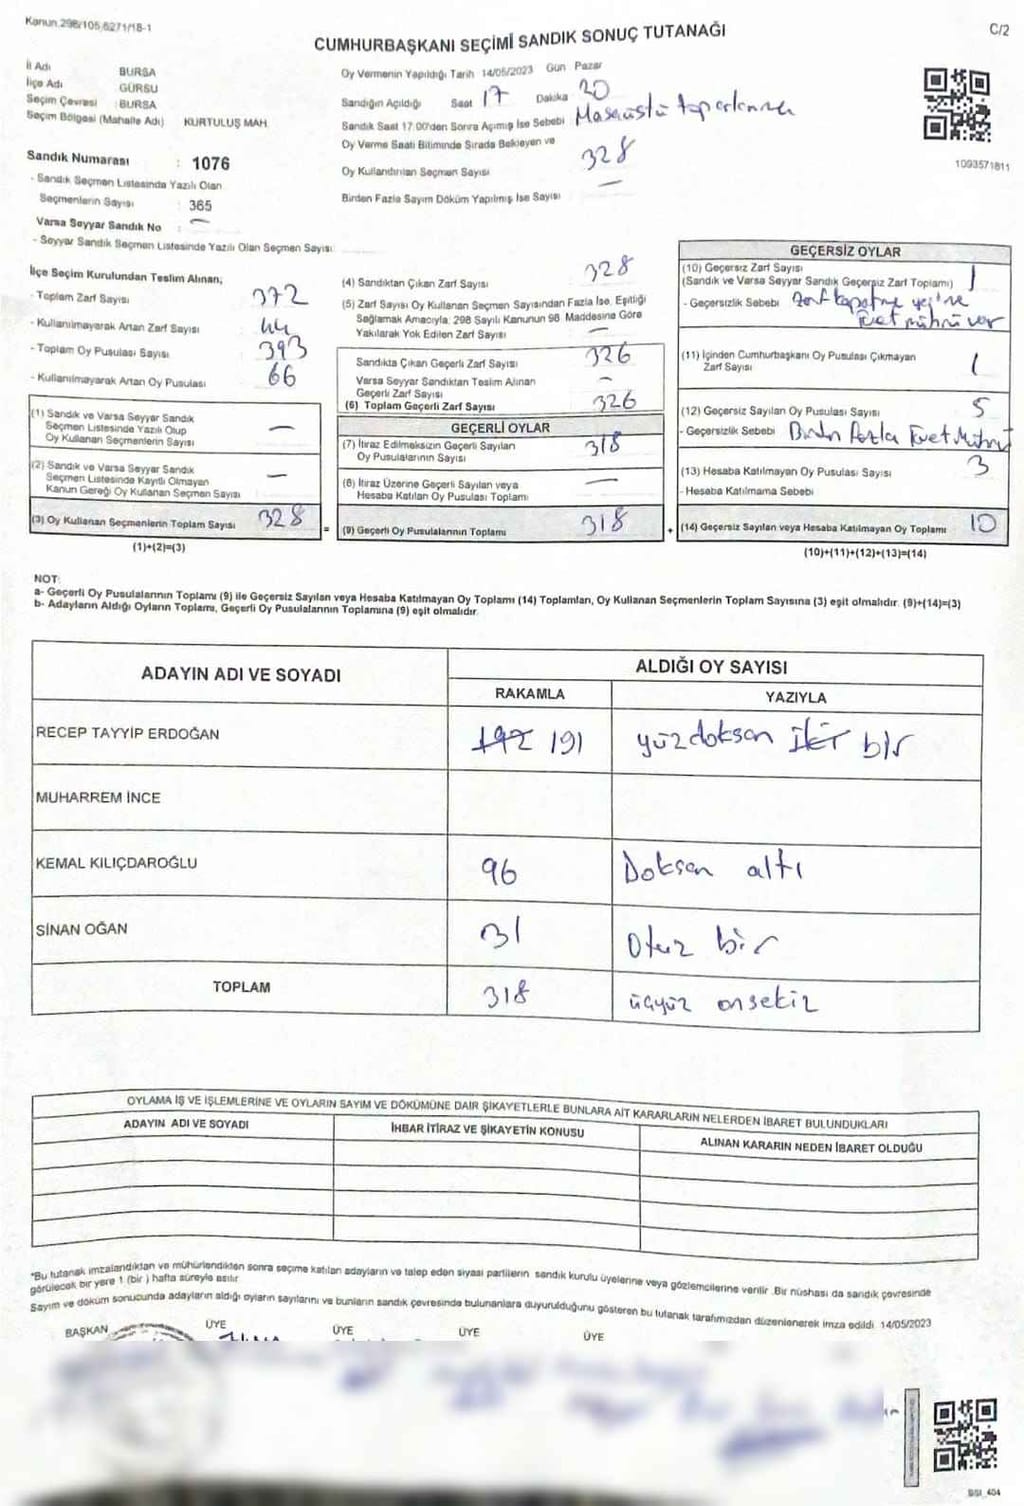 Kanun.298/105,6271/18-1
C/2
CUMHURBAŞKANI SEÇİMİ SANDIK SONUÇ TUTANAĞI
İl Adı BURSA
İlçe Adı GÜRSU
Seçim Çevresi : BURSA
Seçim Bölgesi (Mahalle Adı) KURTULUŞ MAH.
Oy Vermenin Yapıldığı Tarih 14/05/2023 Gün Pazar
Sandığın Açıldığı Saat 17 Dakika 20
Sandık Saat 17:00'den Sonra Açılmış İse Sebebi : Masaüstü toparlanma
Oy Verme Saati Bitiminde Sırada Bekleyen ve
Oy Kullandırılan Seçmen Sayısı 328
Birden Fazla Sayım Döküm Yapılmış İse Sayısı —
1093571811
Sandık Numarası : 1076
- Sandık Seçmen Listesinde Yazılı Olan
Seçmenlerin Sayısı : 365
Varsa Seyyar Sandık No : —
- Seyyar Sandık Seçmen Listesinde Yazılı Olan Seçmen Sayısı:
İlçe Seçim Kurulundan Teslim Alınan;
- Toplam Zarf Sayısı 372
- Kullanılmayarak Artan Zarf Sayısı : 44
- Toplam Oy Pusulası Sayısı 393
- Kullanılmayarak Artan Oy Pusulası 66
(1) Sandık ve Varsa Seyyar Sandık
Seçmen Listesinde Yazılı Olup
Oy Kullanan Seçmenlerin Sayısı —
(2) Sandık ve Varsa Seyyar Sandık
Seçmen Listesinde Kayıtlı Olmayan
Kanun Gereği Oy Kullanan Seçmen Sayısı —
(3) Oy Kullanan Seçmenlerin Toplam Sayısı 328
(1)+(2)=(3)
(4) Sandıktan Çıkan Zarf Sayısı 328
(5) Zarf Sayısı Oy Kullanan Seçmen Sayısından Fazla İse, Eşitliği
Sağlamak Amacıyla; 298 Sayılı Kanunun 98 Maddesine Göre
Yakılarak Yok Edilen Zarf Sayısı —
Sandıkta Çıkan Geçerli Zarf Sayısı 326
Varsa Seyyar Sandıktan Teslim Alınan
Geçerli Zarf Sayısı —
(6) Toplam Geçerli Zarf Sayısı 326
GEÇERLİ OYLAR
(7) İtiraz Edilmeksizin Geçerli Sayılan
Oy Pusulalarının Sayısı 318
(8) İtiraz Üzerine Geçerli Sayılan veya
Hesaba Katılan Oy Pusulası Toplamı —
= (9) Geçerli Oy Pusulalarının Toplamı 318 +
GEÇERSİZ OYLAR
(10) Geçersiz Zarf Sayısı
(Sandık ve Varsa Seyyar Sandık Geçersiz Zarf Toplamı) 1
- Geçersizlik Sebebi Zarf kapatma yerine
Evet mührü var
(11) İçinden Cumhurbaşkanı Oy Pusulası Çıkmayan
Zarf Sayısı 1
(12) Geçersiz Sayılan Oy Pusulası Sayısı 5
- Geçersizlik Sebebi Birden Fazla Evet Mührü
(13) Hesaba Katılmayan Oy Pusulası Sayısı 3
- Hesaba Katılmama Sebebi
(14) Geçersiz Sayılan veya Hesaba Katılmayan Oy Toplamı 10
(10)+(11)+(12)+(13)=(14)
NOT:
a- Geçerli Oy Pusulalarının Toplamı (9) ile Geçersiz Sayılan veya Hesaba Katılmayan Oy Toplamı (14) Toplamları, Oy Kullanan Seçmenlerin Toplam Sayısına (3) eşit olmalıdır. (9)+(14)=(3)
b- Adayların Aldığı Oyların Toplamı, Geçerli Oy Pusulalarının Toplamına (9) eşit olmalıdır.
ADAYIN ADI VE SOYADI ALDIĞI OY SAYISI
RAKAMLA YAZIYLA
RECEP TAYYİP ERDOĞAN 192 191 yüzdoksan iki bir
MUHARREM İNCE
KEMAL KILIÇDAROĞLU 96 Doksan altı
SİNAN OĞAN 31 Otuz bir
TOPLAM 318 üçyüz onsekiz
OYLAMA İŞ VE İŞLEMLERİNE VE OYLARIN SAYIM VE DÖKÜMÜNE DAİR ŞİKAYETLERLE BUNLARA AİT KARARLARIN NELERDEN İBARET BULUNDUKLARI
ADAYIN ADI VE SOYADI İHBAR İTİRAZ VE ŞİKAYETİN KONUSU ALINAN KARARIN NEDEN İBARET OLDUĞU
*Bu tutanak imzalandıktan ve mühürlendikten sonra seçime katılan adayların ve talep eden siyasi partilerin sandık kurulu üyelerine veya gözlemcilerine verilir. Bir nüshası da sandık çevresinde
görülecek bir yere 1 (bir ) hafta süreyle asılır
Sayım ve döküm sonucunda adayların aldığı oyların sayılarını ve bunların sandık çevresinde bulunanlara duyurulduğunu gösteren bu tutanak tarafımızdan düzenlenerek imza edildi. 14/05/2023
BAŞKAN ÜYE ÜYE ÜYE ÜYE
SSI_404